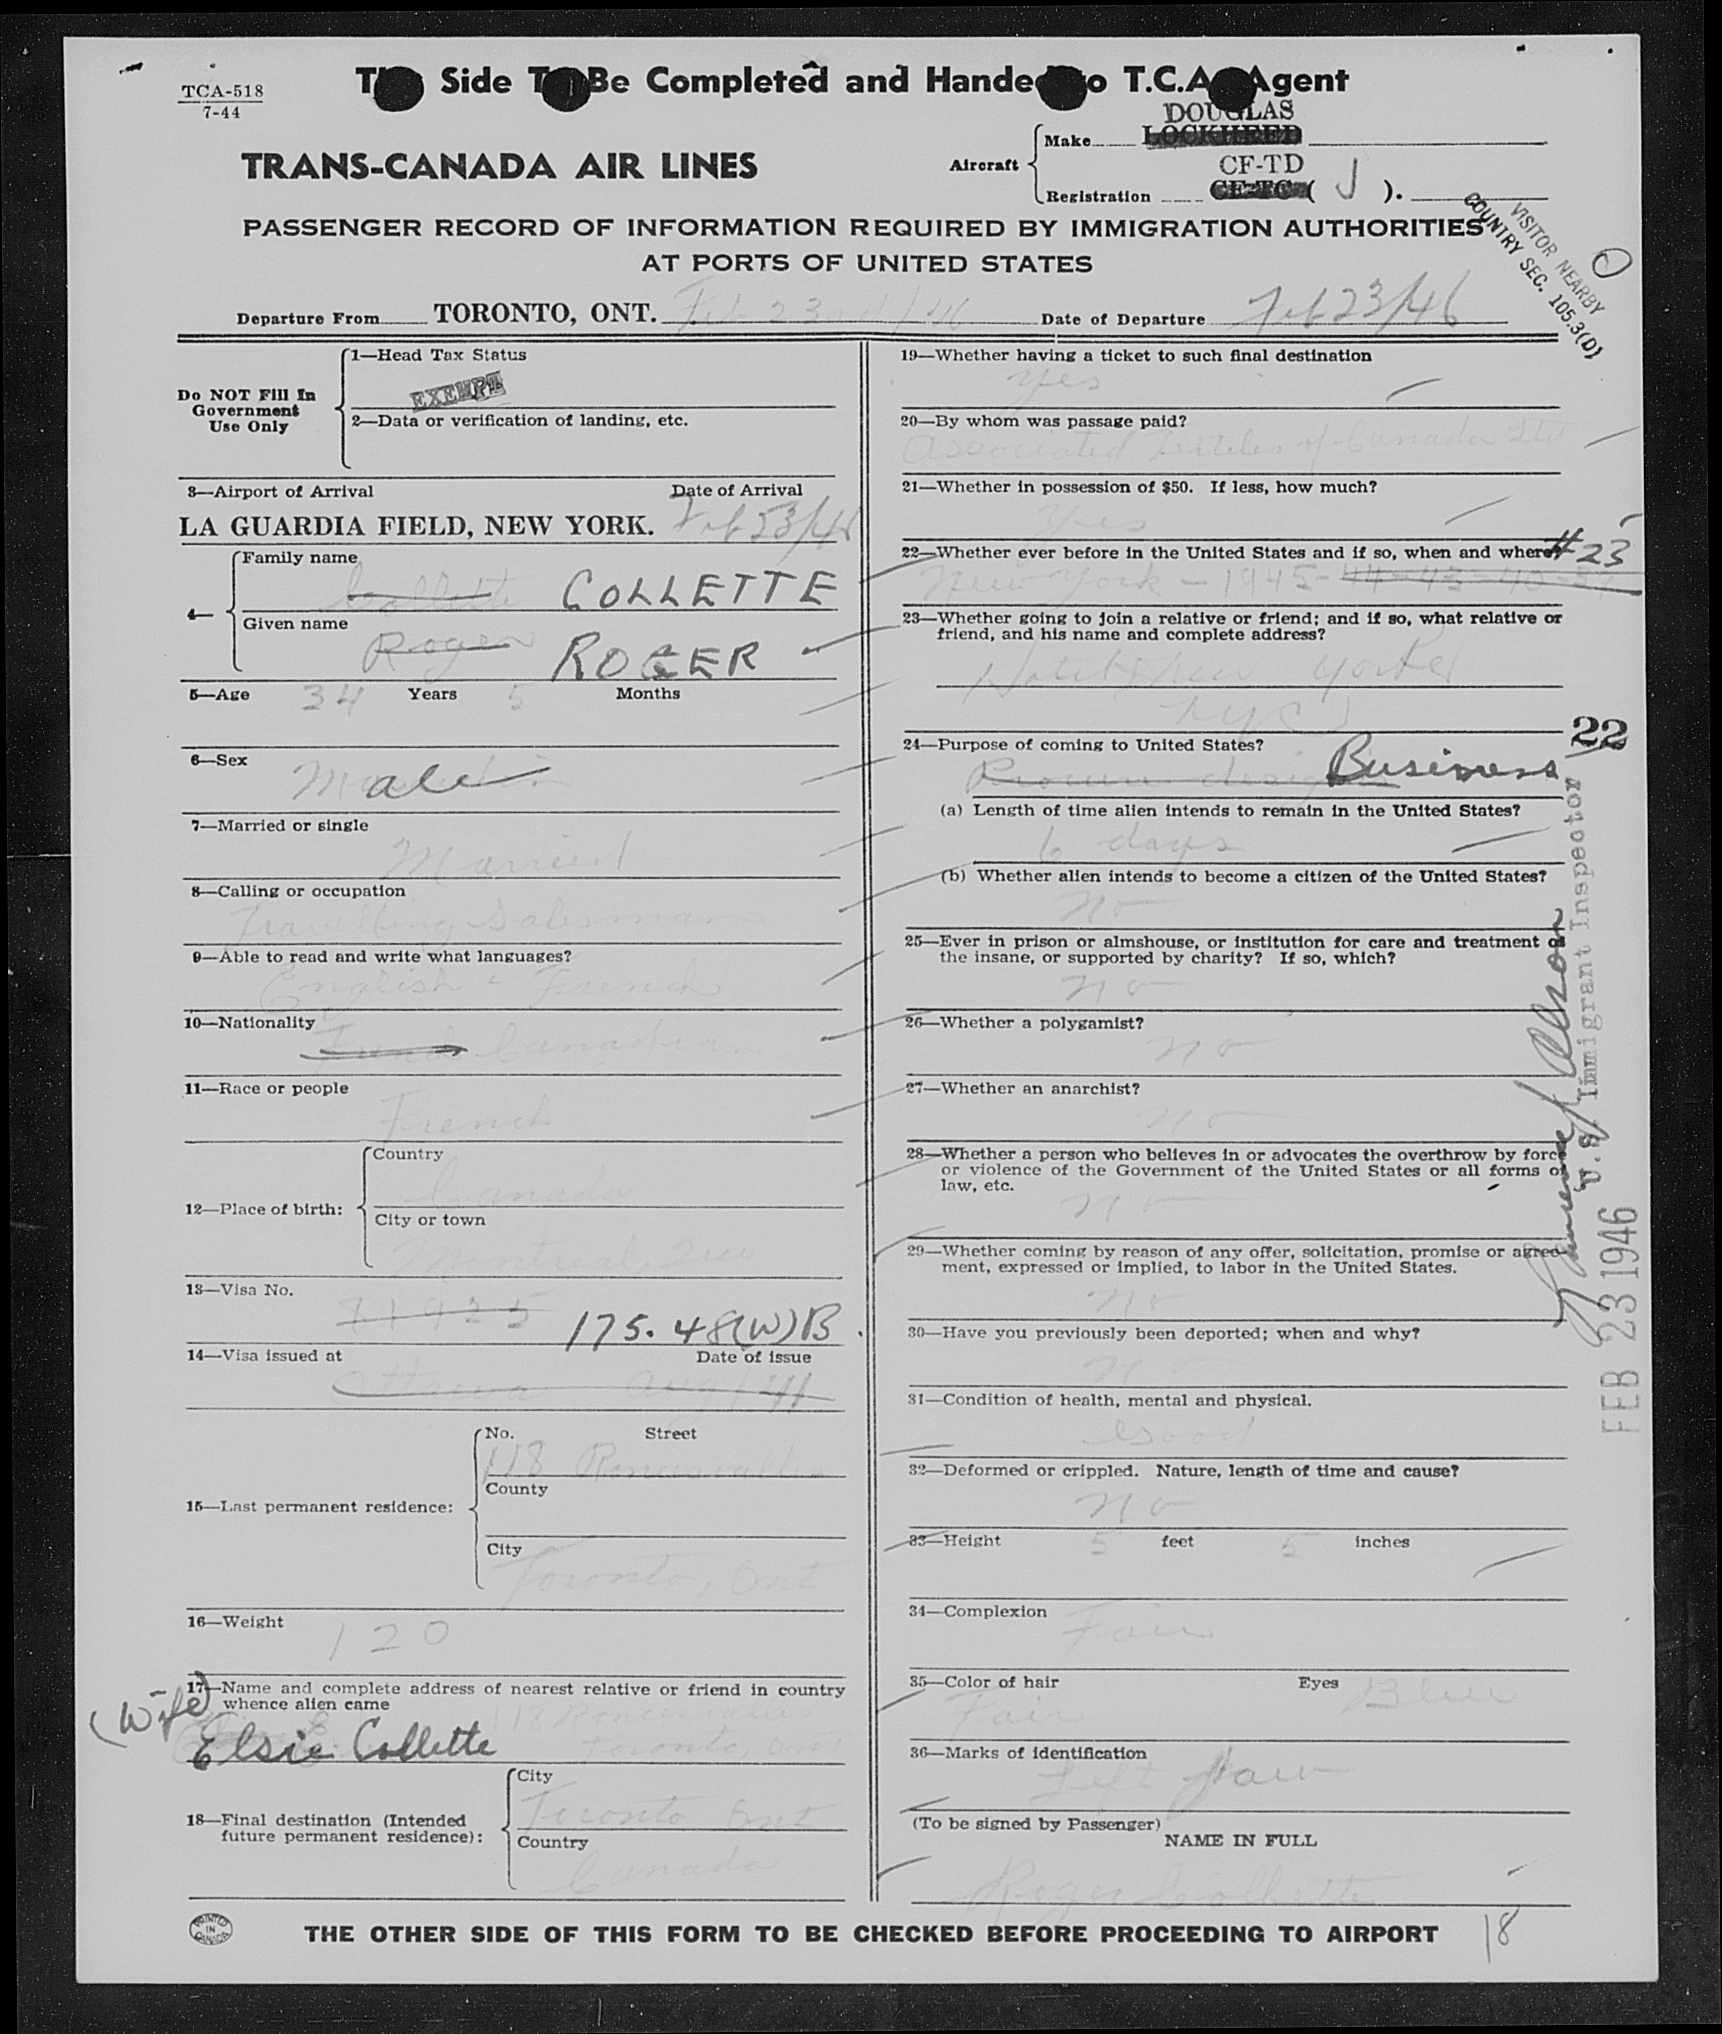 TCA-518
7-44
This Side To Be Completed and Handed to T.C.A. Agent
TRANS-CANADA AIR LINES
Aircraft
Make
DOUGLAS
LOCKHEED
Registration
CF-TD
CF-TC ( J ).
PASSENGER RECORD OF INFORMATION REQUIRED BY IMMIGRATION AUTHORITIES
AT PORTS OF UNITED STATES
VISITOR NEARBY
COUNTRY SEC. 105.3(D)
Departure From TORONTO, ONT. Feb 23rd/46 Date of Departure Feb 23/46
Do NOT Fill In
Government
Use Only
1—Head Tax Status
EXEMPT
2—Data or verification of landing, etc.
3—Airport of Arrival Date of Arrival
LA GUARDIA FIELD, NEW YORK. Feb 23/46
4—
Family name
Collette COLLETTE
Given name
Roger ROGER
5—Age 34 Years 5 Months
6—Sex
Male
7—Married or single
Married
8—Calling or occupation
Travelling Salesman
9—Able to read and write what languages?
English & French
10—Nationality
French Canadian
11—Race or people
French
12—Place of birth:
Country
Canada
City or town
Montreal, Que
13—Visa No.
71925 175.48(W)B
14—Visa issued at Date of issue
Ottawa Aug 1 41
15—Last permanent residence:
No. Street
118 Roncesvalles
County
City
Toronto, Ont
16—Weight
120
17—Name and complete address of nearest relative or friend in country
whence alien came
(Wife)
118 Roncesvalles
Elsie Collette Toronto, Ont
18—Final destination (Intended
future permanent residence):
City
Toronto Ont
Country
Canada
19—Whether having a ticket to such final destination
Yes
20—By whom was passage paid?
Associated Textiles of Canada Ltd
21—Whether in possession of $50. If less, how much?
Yes
22—Whether ever before in the United States and if so, when and where?
#23
New York - 1945 - 44 - 43 - 40
23—Whether going to join a relative or friend; and if so, what relative or
friend, and his name and complete address?
Hotel New Yorker
NYC
24—Purpose of coming to United States?
22
Business
(a) Length of time alien intends to remain in the United States?
6 days
(b) Whether alien intends to become a citizen of the United States?
No
25—Ever in prison or almshouse, or institution for care and treatment of
the insane, or supported by charity? If so, which?
No
26—Whether a polygamist?
No
27—Whether an anarchist?
No
28—Whether a person who believes in or advocates the overthrow by force
or violence of the Government of the United States or all forms of
law, etc.
No
29—Whether coming by reason of any offer, solicitation, promise or agree-
ment, expressed or implied, to labor in the United States.
No
30—Have you previously been deported; when and why?
No
31—Condition of health, mental and physical.
Good
32—Deformed or crippled. Nature, length of time and cause?
No
33—Height 5 feet 5 inches
34—Complexion
Fair
35—Color of hair Eyes
Fair Blue
36—Marks of identification
Left Jaw
(To be signed by Passenger)
NAME IN FULL
Roger Collette
U.S. Immigrant Inspector
FEB 23 1946
PRINTED
IN
CANADA
THE OTHER SIDE OF THIS FORM TO BE CHECKED BEFORE PROCEEDING TO AIRPORT
18